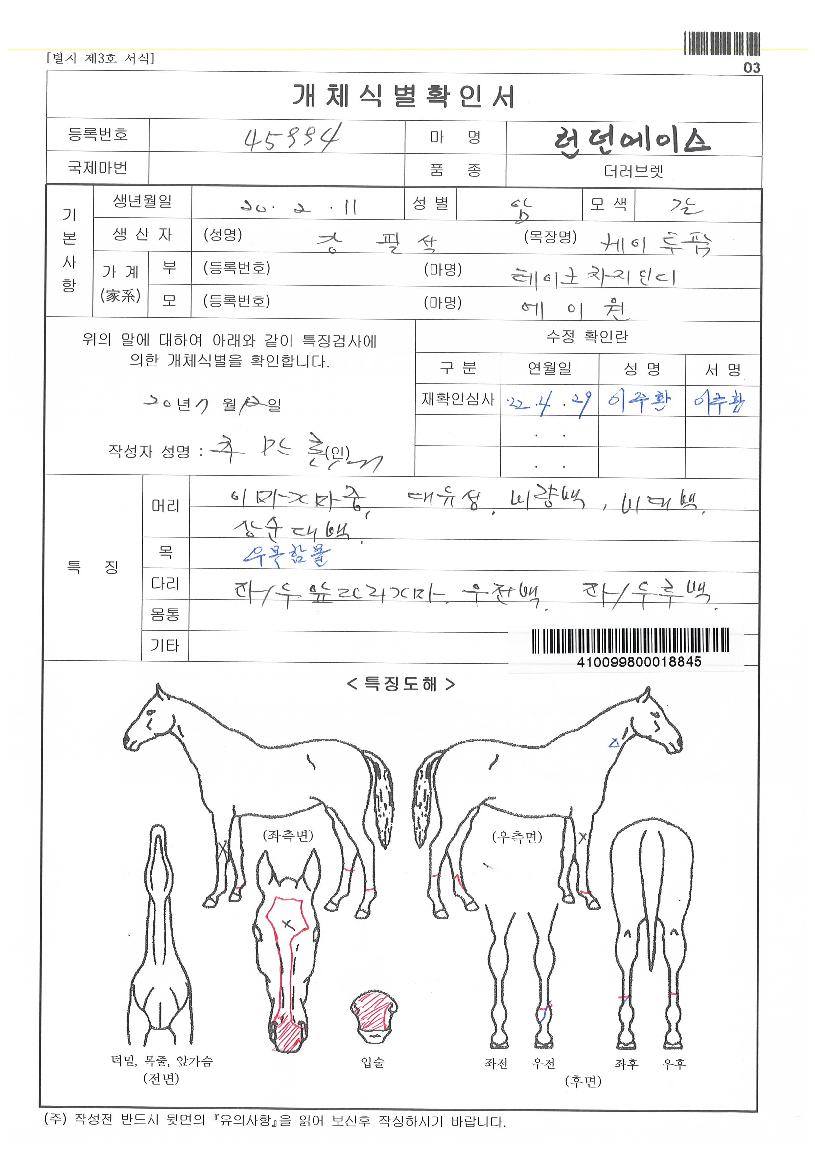 [별지 제3호 서식]
03
개체식별확인서
등록번호 45994 마 명 런던에이스
국제마번 품 종 더러브렛
기본사항
생년월일 20 . 2 . 11 성 별 암 모 색 갈
생 산 자 (성명) 강 필 석 (목장명) 케이투팜
가 계 (家系) 부 (등록번호) (마명) 테이크차지인디
모 (등록번호) (마명) 에이원
위의 말에 대하여 아래와 같이 특징검사에
의한 개체식별을 확인합니다.
20년 7 월 일
작성자 성명 : (인)
수정 확인란
구 분 연월일 성 명 서 명
재확인심사 '22 . 4 . 29 이주환 이주환
. .
. .
특 징
머리 이마지마중, 대유성, 비량백, 비대백,
상순대백.
목 우목함몰
다리 좌/우앞다리지마. 우전백. 좌/우후백.
몸통
기타
410099800018845
< 특징도해 >
(좌측면) (우측면)
턱밑, 목줄, 앞가슴
(전면)
입술
좌전 우전 좌후 우후
(후면)
(주) 작성전 반드시 뒷면의 『유의사항』을 읽어 보신후 작성하시기 바랍니다.